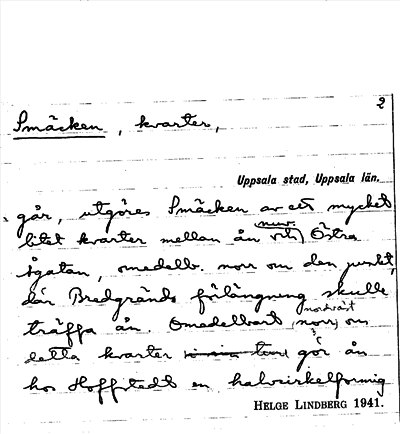 2
Smäcken, kvarter,
Uppsala stad, Uppsala län.
går, utgöres Smäcken av ett mycket
litet kvarter mellan ån och nuv. Östra
Ågatan, omedelb. norr om den punkt,
där Bredgränds förlängning skulle
träffa ån. Omedelbart nordväst (norr) om
detta kvarter gör ån
hos Hoffstedt en halvcirkelformig
HELGE LINDBERG 1941.